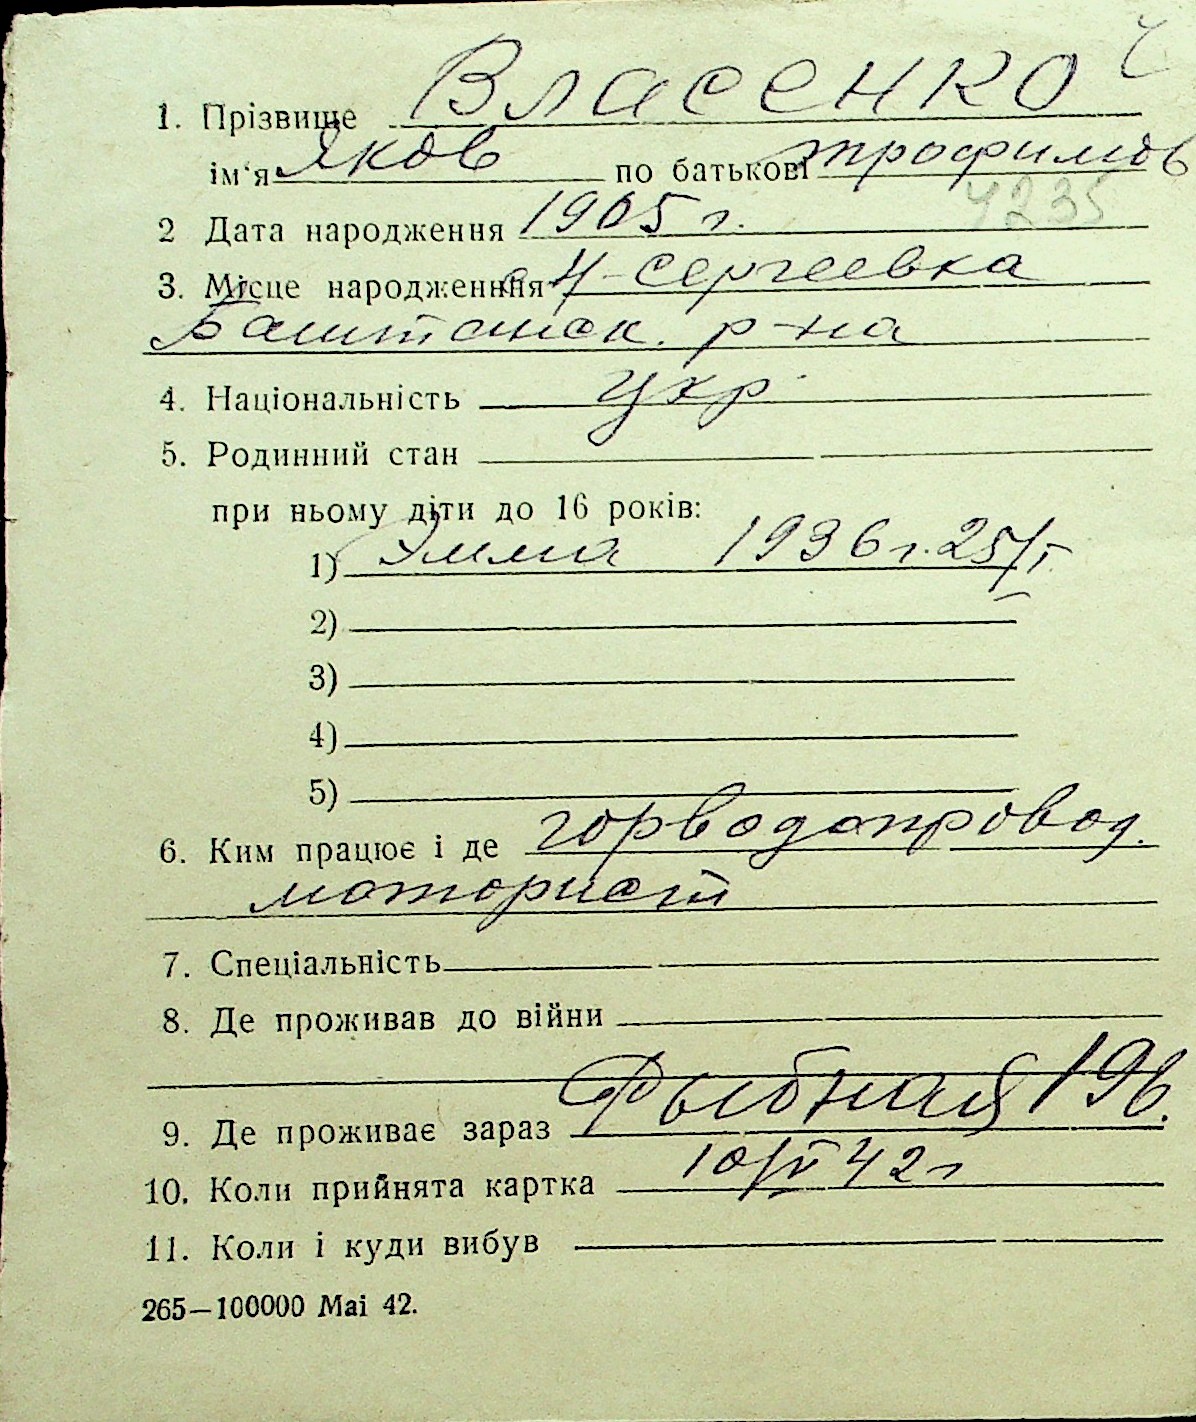 1. Прізвище Власенко
ім'я Яков по батькові Трофимов
4235
2 Дата народження 1905 г.
3. Місце народженння с. Н-Сергеевка
Баштанск. р-на
4. Національність укр.
5. Родинний стан
при ньому діти до 16 років:
1) Эмма 1936 г. 25/I
2)
3)
4)
5)
6. Ким працює і де горводопровод.
моторист
7. Спеціальність
8. Де проживав до війни
9. Де проживає зараз Рыбная 19в.
10. Коли прийнята картка 10/VI 42 г
11. Коли і куди вибув
265—100000 Маі 42.